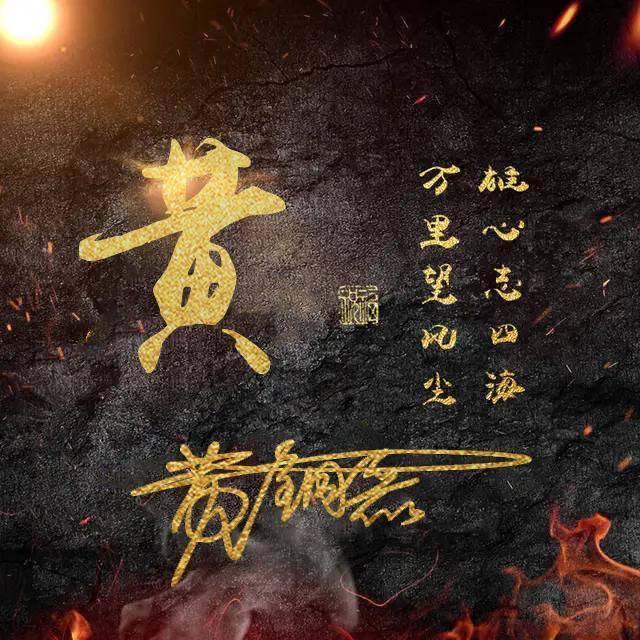 黄
雄心志四海
万里望风尘